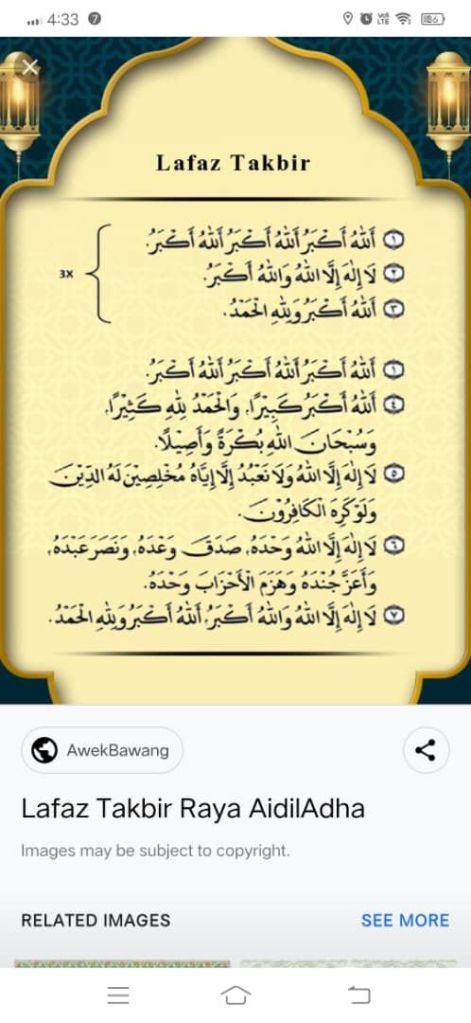 4:33
Lafaz Takbir
١ اَللهُ أَكْبَرُ اَللهُ أَكْبَرُ اَللهُ أَكْبَرُ.
٢ لَا إِلٰهَ إِلَّا اللهُ وَاللهُ أَكْبَرُ.
3X
٣ اَللهُ أَكْبَرُ وَلِلّٰهِ الْحَمْدُ.
١ اَللهُ أَكْبَرُ اَللهُ أَكْبَرُ اَللهُ أَكْبَرُ.
٤ اَللهُ أَكْبَرُ كَبِيْرًا، وَالْحَمْدُ لِلّٰهِ كَثِيْرًا،
وَسُبْحَانَ اللهِ بُكْرَةً وَأَصِيْلًا.
٥ لَا إِلٰهَ إِلَّا اللهُ وَلَا نَعْبُدُ إِلَّا إِيَّاهُ مُخْلِصِيْنَ لَهُ الدِّيْنَ
وَلَوْ كَرِهَ الْكَافِرُوْنَ.
٦ لَا إِلٰهَ إِلَّا اللهُ وَحْدَهُ، صَدَقَ وَعْدَهُ، وَنَصَرَ عَبْدَهُ،
وَأَعَزَّ جُنْدَهُ وَهَزَمَ الْأَحْزَابَ وَحْدَهُ.
٧ لَا إِلٰهَ إِلَّا اللهُ وَاللهُ أَكْبَرُ، اَللهُ أَكْبَرُ وَلِلّٰهِ الْحَمْدُ.
AwekBawang
Lafaz Takbir Raya AidilAdha
Images may be subject to copyright.
RELATED IMAGES
SEE MORE